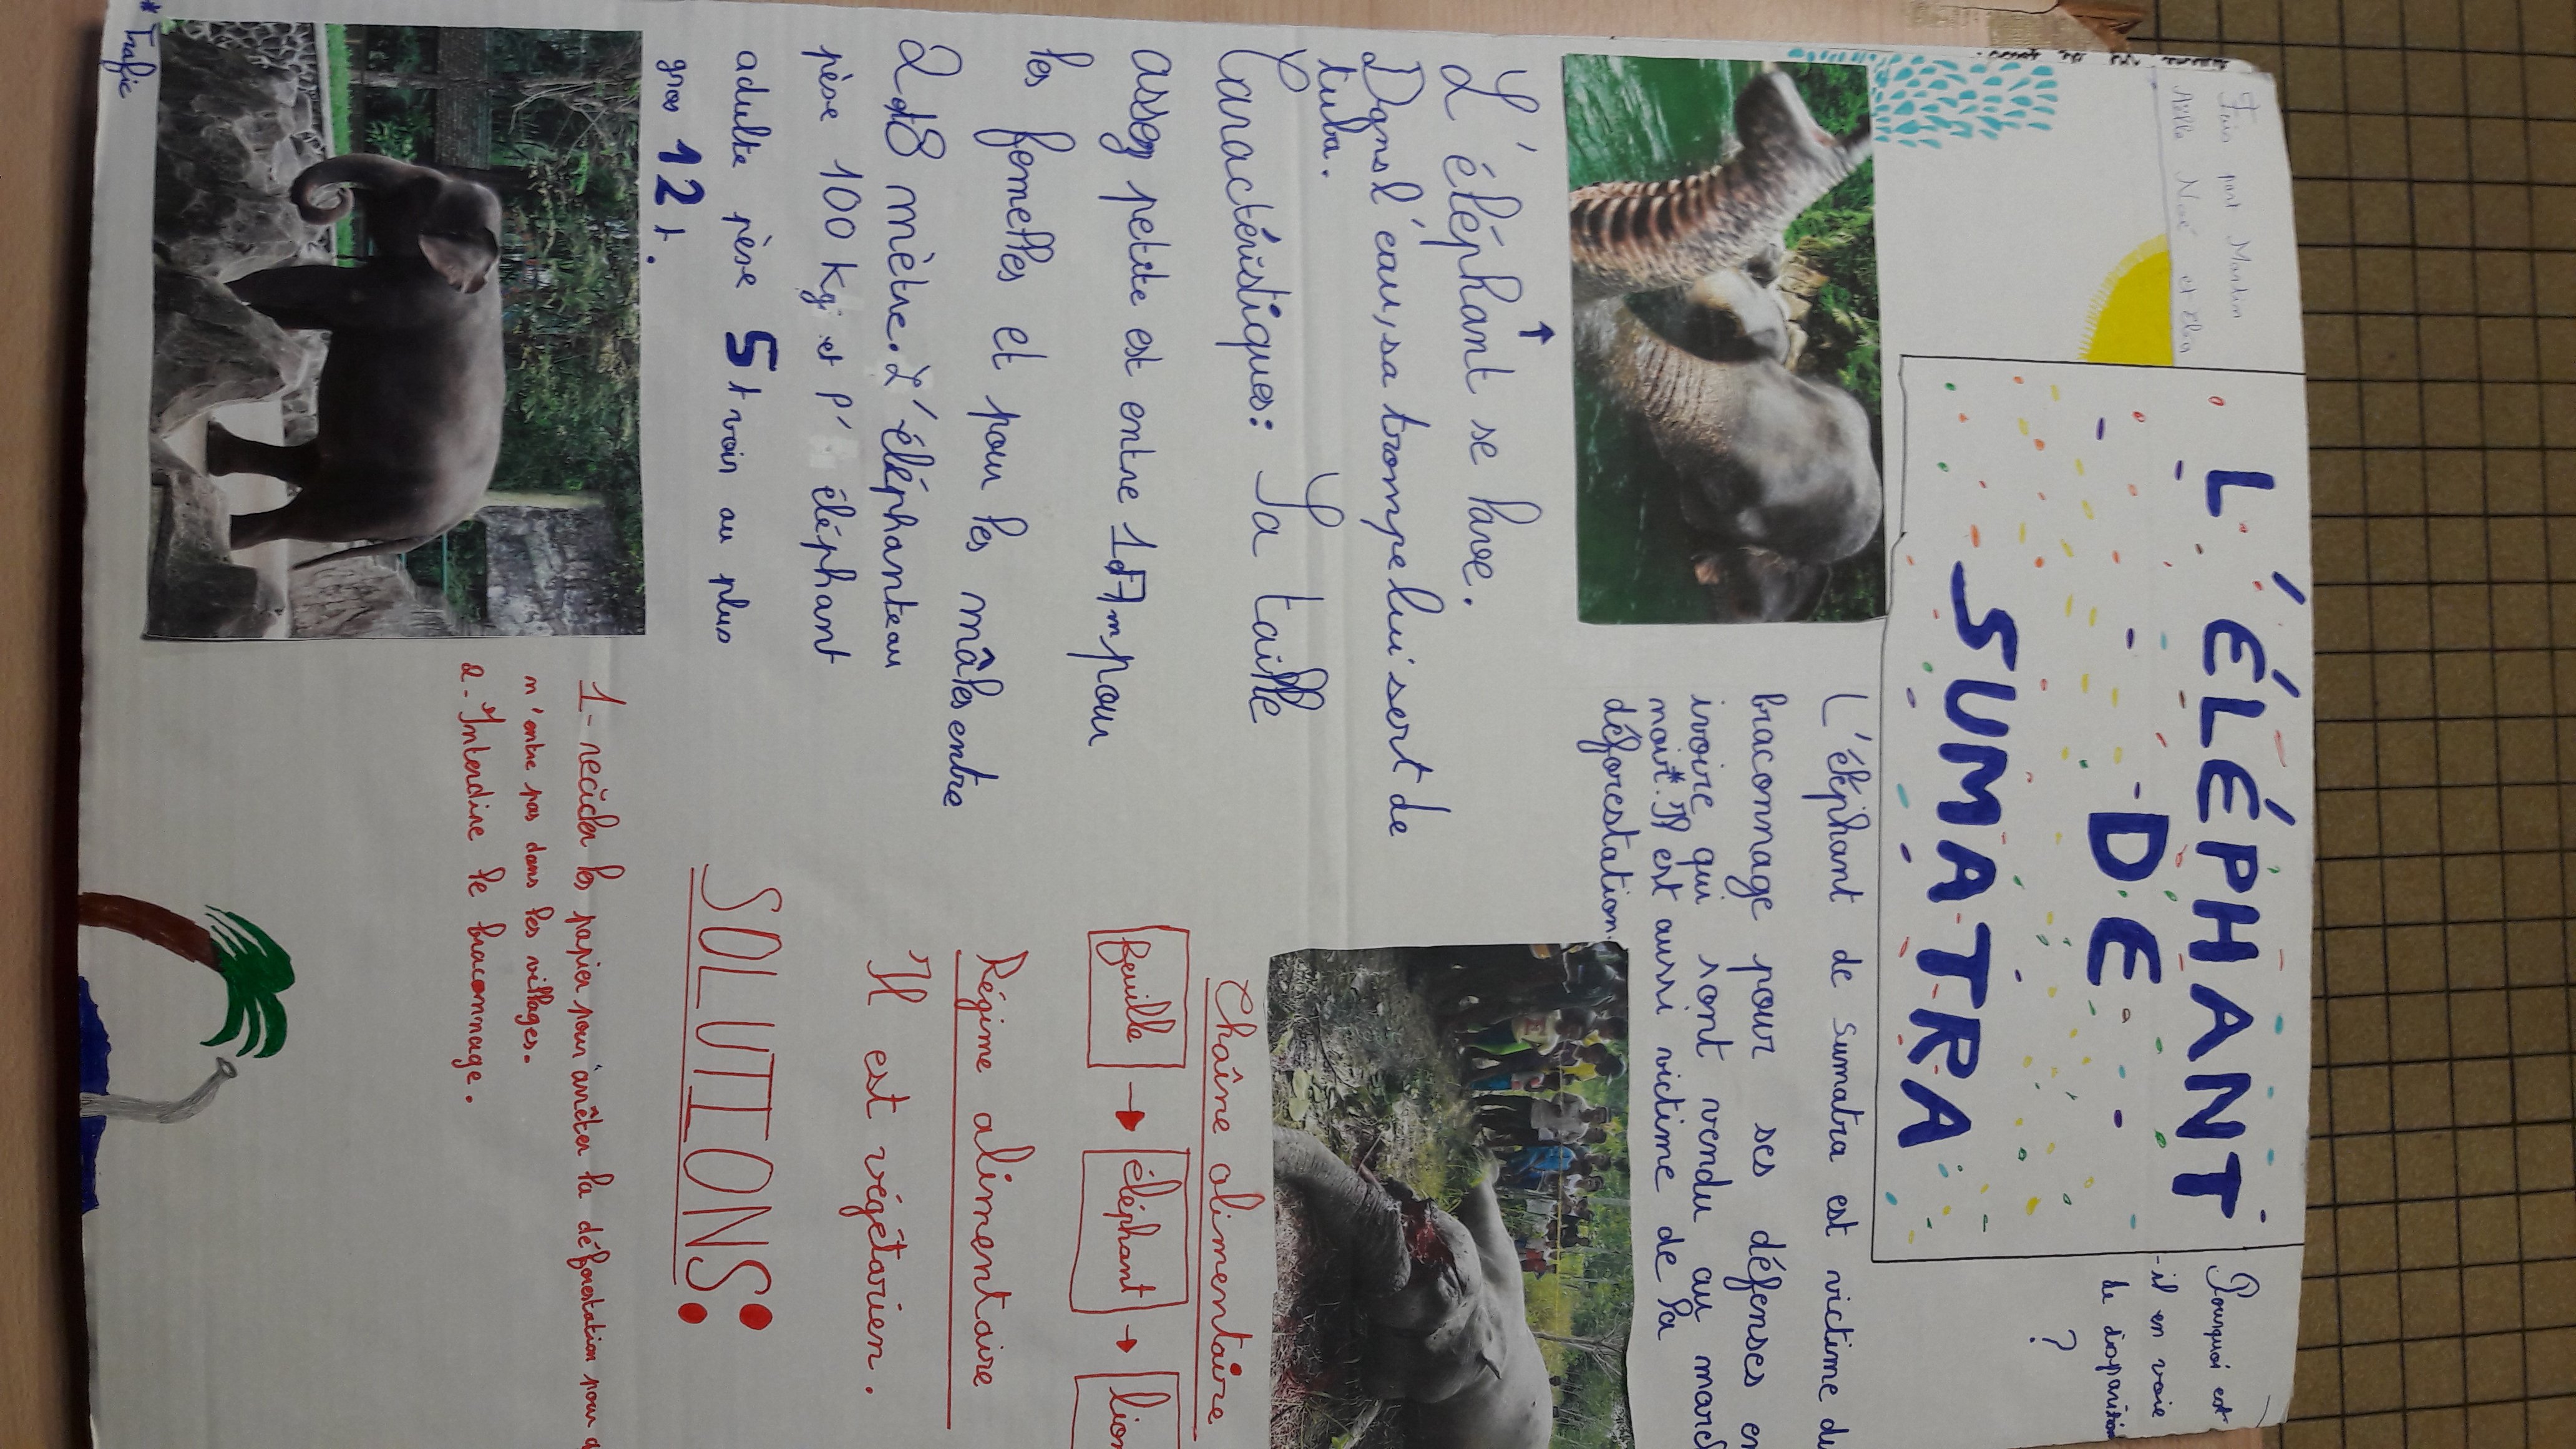 Fais par Martin
Noé et Elea
L'ÉLÉPHANT
DE
SUMATRA
Pourquoi est
-il en voie
de disparition
?
L'éléphant se lave.
Dans l'eau, sa trompe lui sert de
tuba.
Caractéristiques: Sa taille
assez petite est entre 1et7m pour
les femelles et pour les mâles entre
2et8 mètre. L'éléphanteau
pèse 100 kg et l'éléphant
adulte pèse 5t voir au plus
gros 12t.
* Trafic
L'éléphant de sumatra est victime du
braconnage pour ses défenses en
ivoire qui sont vendu au marc
noir*. Il est aussi victime de la
déforestation
Chaîne alimentaire
feuille → éléphant → lion
Régime alimentaire
Il est végétarien.
SOLUTIONS:
1- recicler les papier pour arrêter la déforestation pour q
n'entre pas dans les villages.
2- Interdire le braconnage.